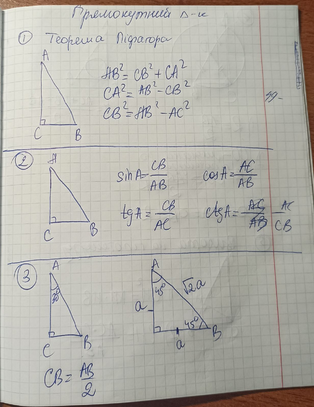 Прямокутний Δ-к
① Теорема Піфагора
A
AB² = CB² + CA²
CA² = AB² - CB²
CB² = AB² - AC²
C B
②
A
sinA = CB/AB cosA = AC/AB
tgA = CB/AC ctgA = AC/CB
C B
③
A A
30° 45° √2a
a
45°
C B a B
CB = AB/2